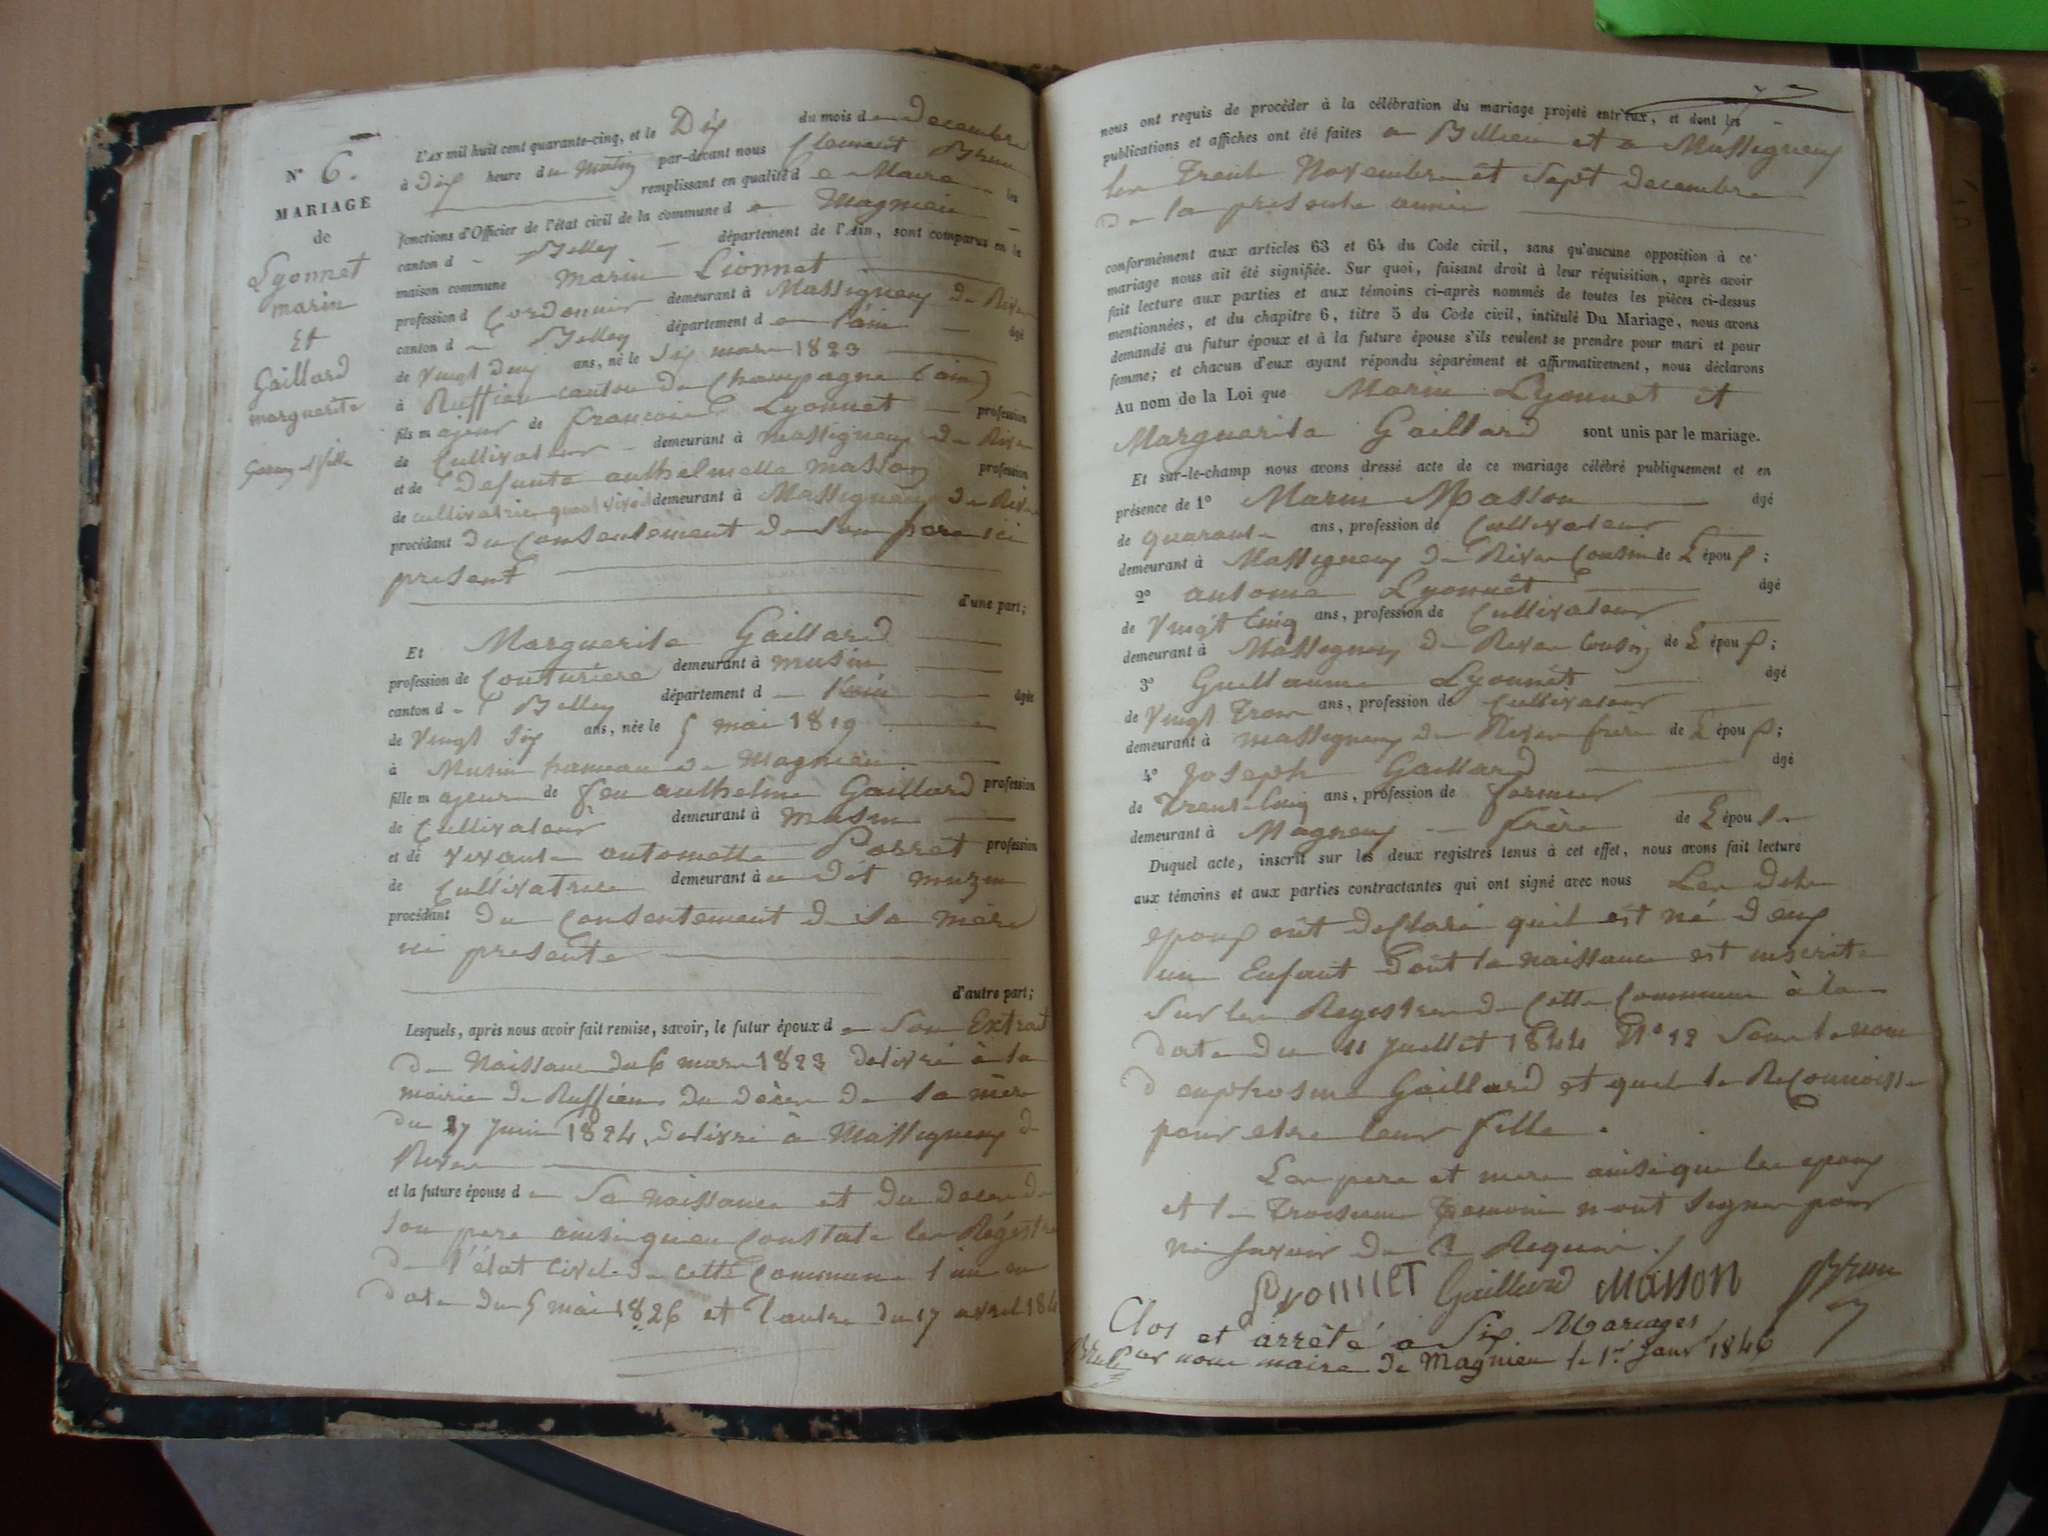 N° 6.
MARIAGE
de
Lyonnet
marin
Et
Gaillard
marguerite
Garçon et fille
L'AN mil huit cent quarante-cinq, et le Dix du mois de Decembre
à Dix heure du Matin par-devant nous Clement Brun
remplissant en qualité de Maire les
fonctions d'Officier de l'état civil de la commune de Magnieu
canton de Belley département de l'Ain, sont comparus en la
maison commune Marin Lionnet
profession de Cordonnier demeurant à Massigneux de Rives
canton de Belley département de l'ain âgé
de Vingt deux ans, né le Six mars 1823
à Ruffieu canton de Champagne (ain)
fils majeur de francois Lyonnet profession
de Cultivateur demeurant à massigneux de Rives
et de Defunte anthelmette masson profession
de cultivatrice quand vivait demeurant à Massigneux de Rives
procédant du Consentement de son pere ici
present
d'une part;
Et Marguerite Gaillard
profession de Couturière demeurant à musin
canton de Belley département de l'ain âgée
de Vingt Six ans, née le 5 mai 1819
à Musin hameau de Magnieu
fille majeure de feu anthelme Gaillard profession
de Cultivateur demeurant à Musin
et de vivante antoinette Porret profession
de Cultivatrice demeurant à u Dit muzin
procédant du Consentement de sa mère
ici presente
d'autre part;
Lesquels, après nous avoir fait remise, savoir, le futur époux de son Extrait
de Naissance du 6 mars 1823 delivré à la
mairie de Ruffieu du décès de sa mère
du 27 Juin 1824 delivré à Massigneux de
Rives
et la future épouse de sa naissance et du deces de
son pere ainsi qu'en Constate les Régistre
de l'état civil de cette Commune l'un en
date du 5 mai 1826 et l'autre du 17 avril 184
nous ont requis de procéder à la célébration du mariage projeté entr'eux, et dont les
publications et affiches ont été faites a Billieu et a Massigneux
les Trente Novembre et Sept Decembre
De la presente année
conformément aux articles 63 et 64 du Code civil, sans qu'aucune opposition à ce
mariage nous ait été signifiée. Sur quoi, faisant droit à leur réquisition, après avoir
fait lecture aux parties et aux témoins ci-après nommés de toutes les pièces ci-dessus
mentionnées, et du chapitre 6, titre 5 du Code civil, intitulé Du Mariage, nous avons
demandé au futur époux et à la future épouse s'ils veulent se prendre pour mari et pour
femme; et chacun d'eux ayant répondu séparément et affirmativement, nous déclarons
Au nom de la Loi que Marin Lyonnet et
Marguerite Gaillard sont unis par le mariage.
Et sur-le-champ nous avons dressé acte de ce mariage célébré publiquement et en
présence de 1° Marin Masson âgé
de quarante ans, profession de Cultivateur
demeurant à Massigneux de Rives Cousin de L'époux;
2° antoine Lyonnet âgé
de Vingt Cinq ans, profession de Cultivateur
demeurant à Massigneux de Rives Cousin de L'époux;
3° Guillaume Lyonnet âgé
de Vingt Trois ans, profession de Cultivateur
demeurant à massigneux de Rives frère de L'époux;
4° Joseph Gaillard âgé
de Trente-Cinq ans, profession de fermier
demeurant à Magneux frère de L'épouse
Duquel acte, inscrit sur les deux registres tenus à cet effet, nous avons fait lecture
aux témoins et aux parties contractantes qui ont signé avec nous Les dits
epoux ont declaré quil est né d'eux
un Enfant Dont la naissance est inscrite
sur les Registres de Cette Commune à la
date du 11 Juillet 1844 N° 12 sous le nom
d'euphrosine Gaillard et quil le Reconnoisse
pour etre leur fille.
Les pere et mere ainsi que les epoux
et le Troisieme Temoin n'ont signer pour
ne savoir de ce Requis.
Lyonnet Gaillard Masson Brun
Clos et arrêté a Six Mariages
par nous maire de Magnieu le 1er Janv 1846